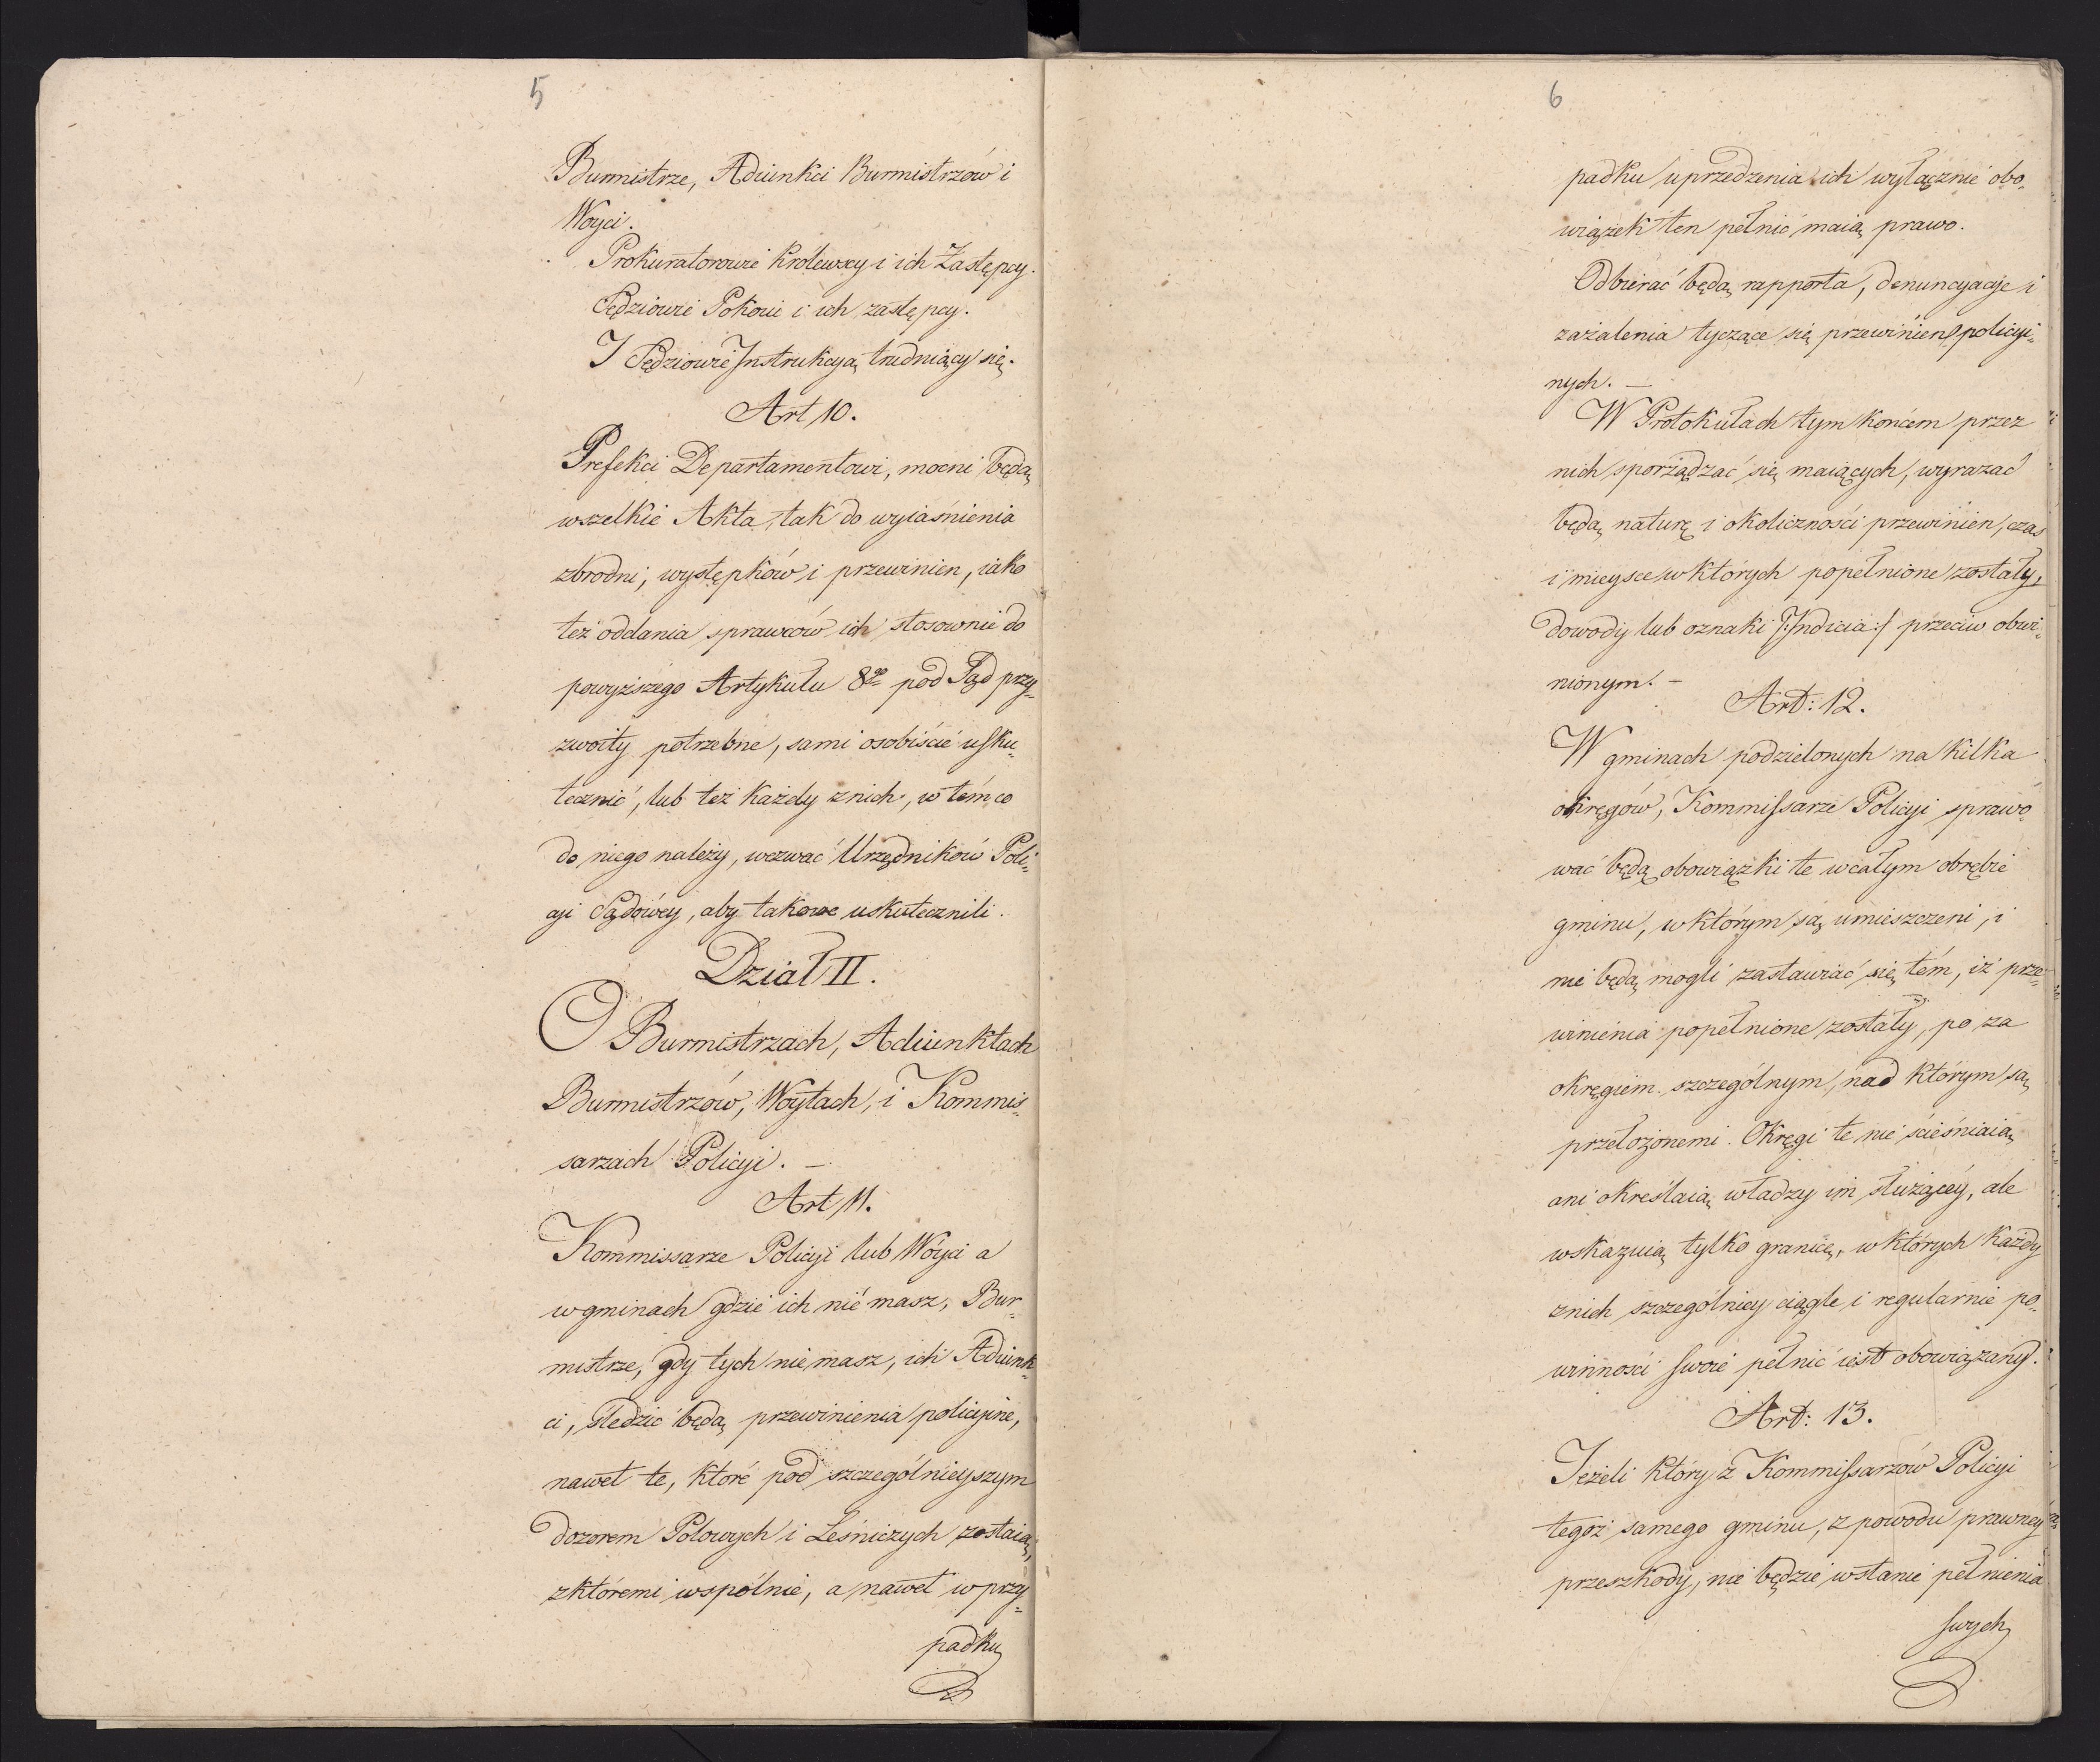 5
Burmistrze, Adiunkci Burmistrzów i
Woyci.
Prokuratorowie Królewscy i ich Zastępcy.
Sędziowie Pokoiu i ich zastępcy.
I Sędziowie Instrukcyą trudniący się.
Art 10.
Prefekci Departamentowi, mocni będą
wszelkie Akta, tak do wyiaśnienia
zbrodni, występków i przewinien, iako
też oddania sprawców ich stosownie do
powyższego Artykułu 8go pod Sąd przy=
zwoity potrzebne, sami osobiście usku=
tecznić, lub też każdy z nich, w tém co
do niego należy, wezwać Urzędników Poli=
cyi Sądowey, aby takowe uskutecznili.
Dział II.
O Burmistrzach, Adiunktach
Burmistrzów, Woytach, i Kommis=
sarzach Policyi. —
Art 11.
Kommissarze Policyi lub Wóyci a
w gminach gdzie ich nie masz, Bur=
mistrze, gdy tych nie masz, ich Adiunk=
ci, śledzić będą przewinienia policyine,
nawet te, które pod szczególnieyszym
dozorem Polowych i Leśniczych zostaią,
z któremi wspólnie, a nawet w przy=
padku
6
padku uprzedzenia ich wyłącznie obo=
wiązek ten pełnić maią prawo.
Odbierać będą rapporta, denuncyacye i
zażalenia tyczące się przewinien policyi=
nych. —
W Protokułach tym końcem przez
nich sporządzać się maiących, wyrazać
będą naturę i okoliczności przewinien, czas
i mieysce w których popełnione zostały,
dowody lub oznaki /:Indicia:/ przeciw obwi=
nionym. —
Art: 12.
W gminach podzielonych na kilka
okręgów, Kommissarze Policyi sprawo=
wać będą obowiązki te w całym obrębie
gminu, w którym są umieszczeni, i
nie będą mogli zastawiać się tém, iż prze=
winienia popełnione zostały, po za
okręgiem szczególnym, nad którym są
przełożonemi. Okręgi te nie ścieśniaią
ani określaią władzy im służącéy, ale
wskazuią tylko granicę, w których każdy
z nich szczególniey ciągle i regularnie po=
winności swoie pełnić iest obowiązany.
Art: 13.
Jeżeli który z Kommissarzów Policyi
tegoż samego gminu, z powodu prawney
przeszkody, nie będzie w stanie pełnienia
swych